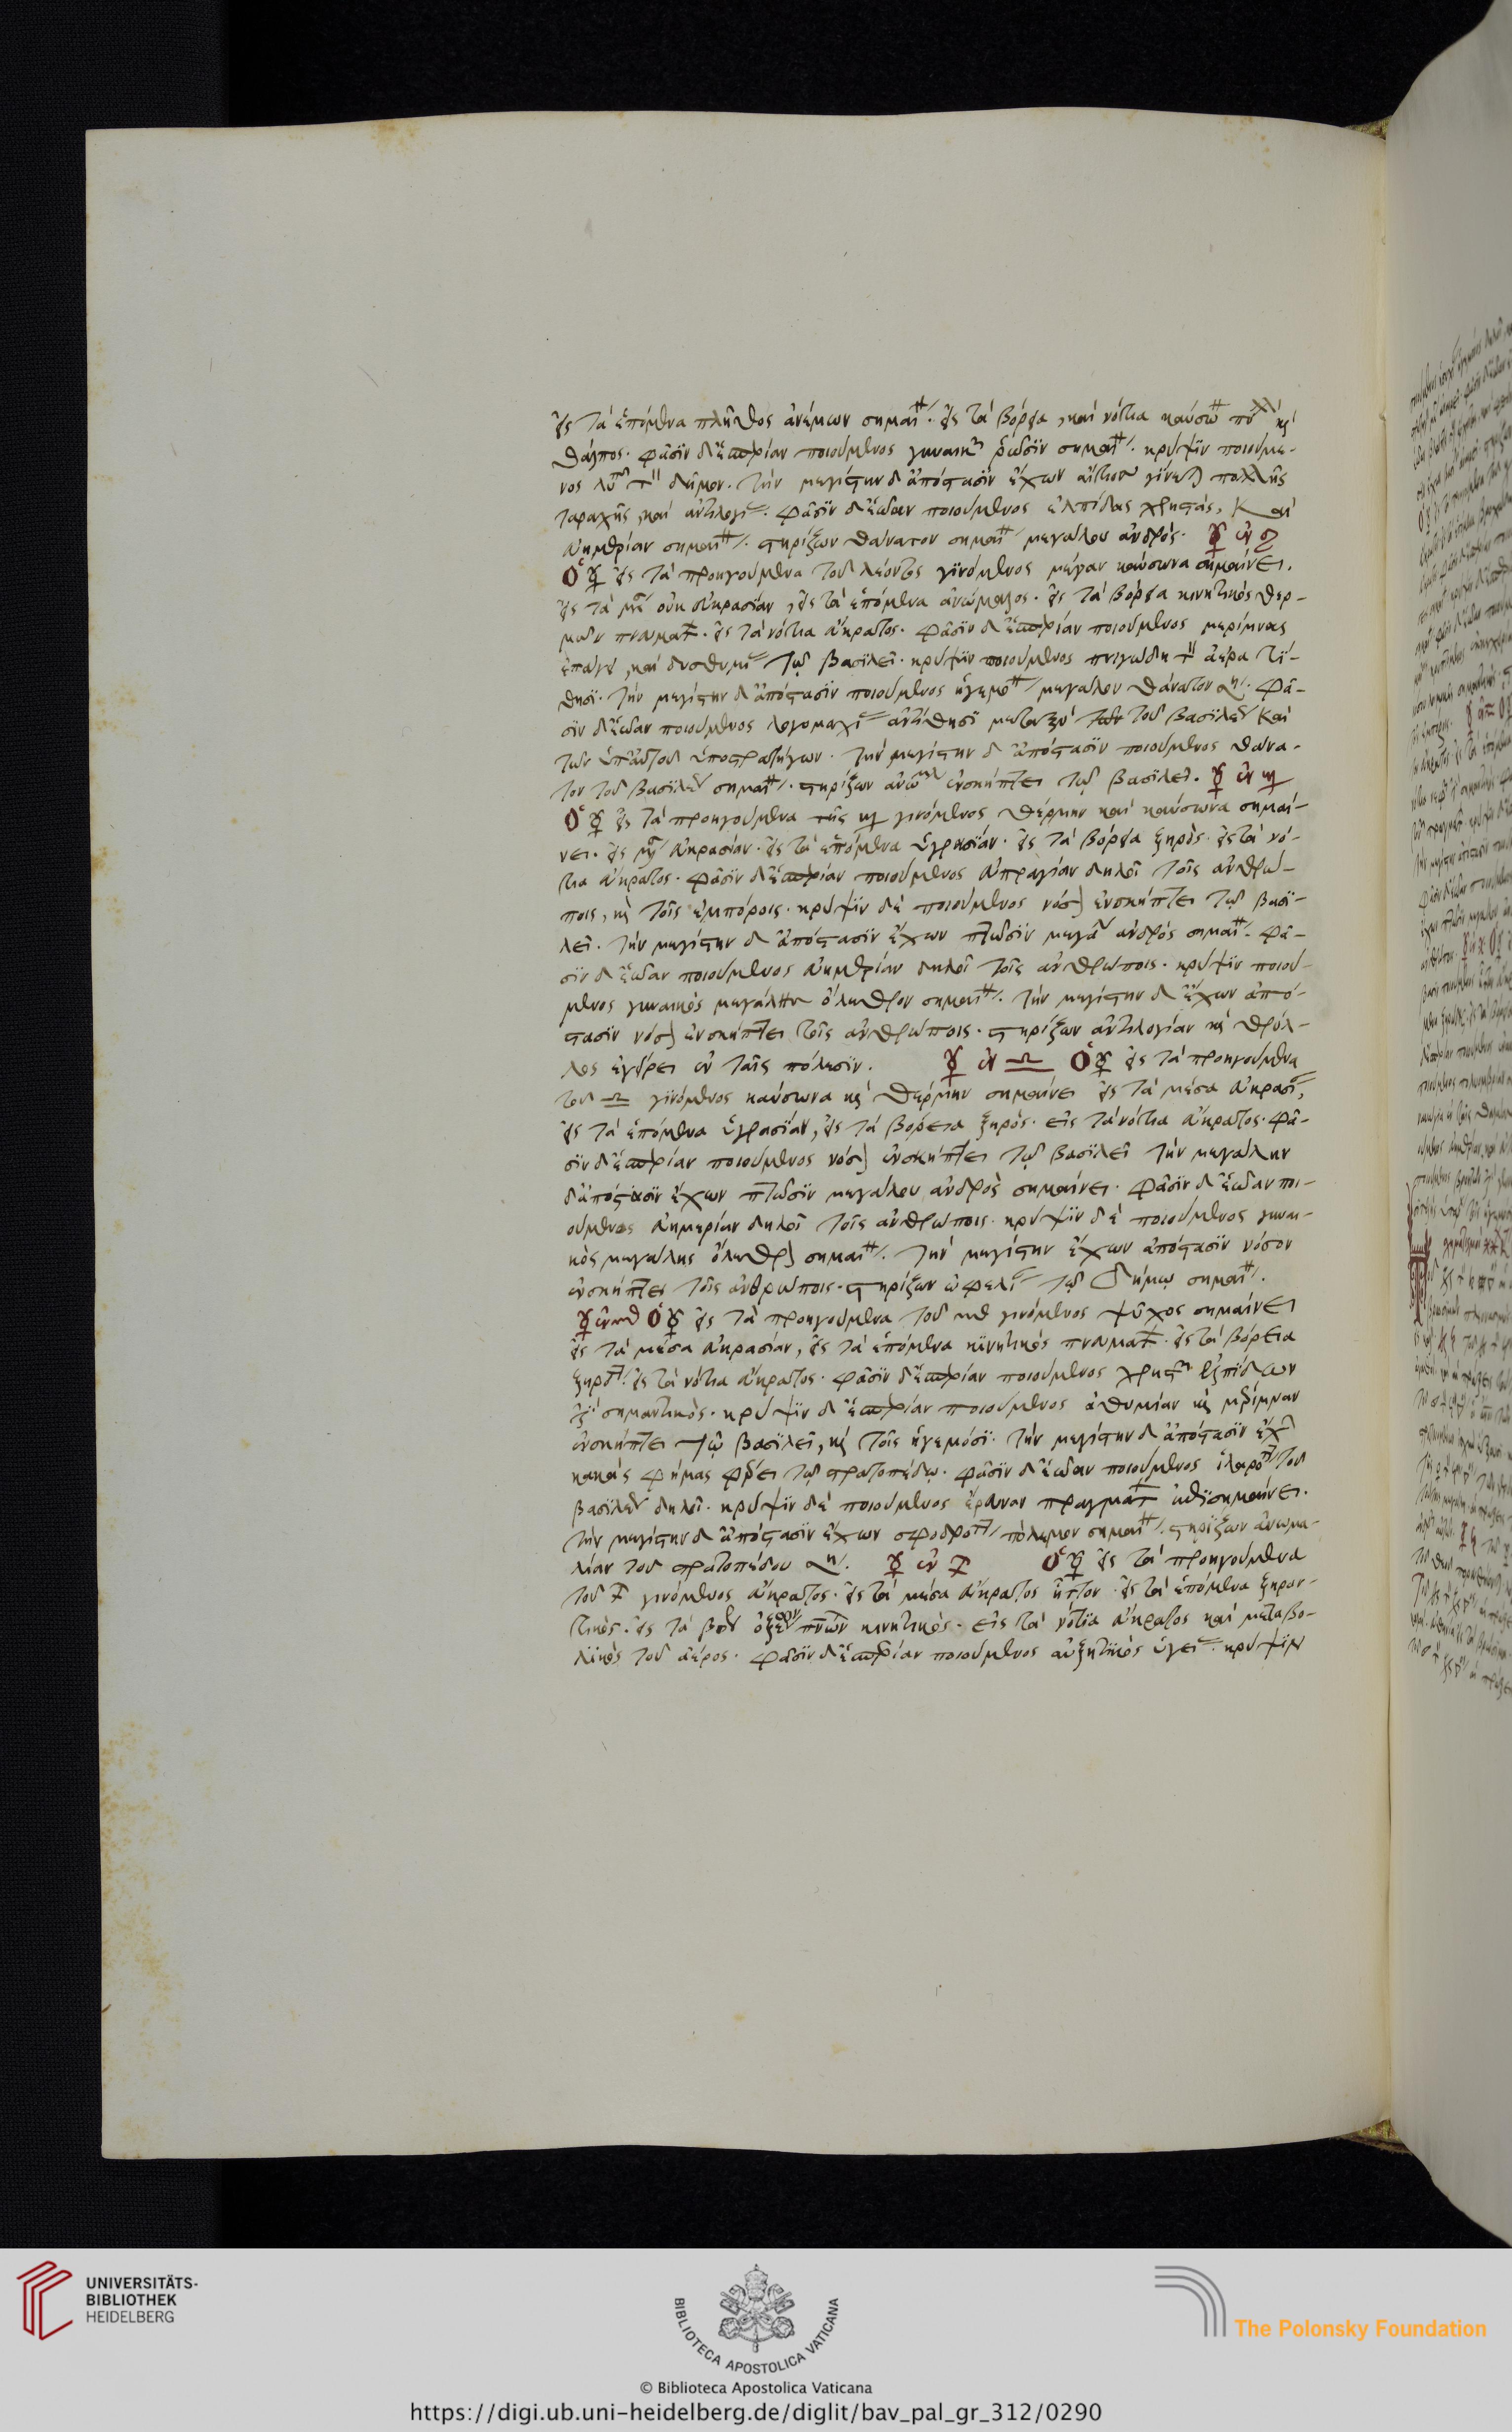 εἰς τὰ ἑπόμενα πλῆθος ἀνέμων σημαί. εἰς τὰ βόρεια, καὶ νότια καύσω πο καὶ
θάλπος. φάσιν δ' ἑσπερίαν ποιούμενος γυναικ σημαί. κρύψιν ποιούμε-
νος δῆμον. τὴν μεγίστην δ' ἀπόστασιν ἔχων αἴτιος γίνεται πολλῆς
ταραχῆς, καὶ ἀντιλογί. φάσιν δ' ἑῴαν ποιούμενος ἐλπίδας χρηστάς, καὶ
εὐημερίαν σημαί. στηρίζων θάνατον σημαί μεγάλου ἀνδρός. ☿ ἐν ♌
Ὁ ☿ εἰς τὰ προηγούμενα τοῦ λέοντος γινόμενος μέγαν καύσωνα σημαίνει.
εἰς τὰ μέ οὐκ εὐκρασίαν, εἰς τὰ ἑπόμενα ἀνώμαλος. εἰς τὰ βόρεια κινητικὸς θερ-
μῶν πνευμάτ. εἰς τὰ νότια εὔκρατος. φάσιν δ' ἑσπερίαν ποιούμενος μερίμνας
ἐπάγει, καὶ δυσθυμί τῷ βασιλεῖ. κρύψιν ποιούμενος πνιγώδη τ ἀέρα τί-
θησι. τὴν μεγίστην δ' ἀπόστασιν ποιούμενος ἡγεμό μεγάλου θάνατον δη. φά-
σιν δ' ἑῴαν ποιούμενος λογομαχί ἀντίθησι μεταξὺ τοῦ βασιλέ καὶ
τῶν ὑπ' αὐτοῦ ὑποστρατήγων. τὴν μεγίστην δ' ἀπόστασιν ποιούμενος θάνα-
τον τοῦ βασιλέ σημαί. στηρίζων ἀνω ἐνσκήπτει τῷ βασιλεῖ. ☿ ἐν ♍
Ὁ ☿ εἰς τὰ προηγούμενα τῆς ♍ γινόμενος θέρμην καὶ καύσωνα σημαί-
νει. εἰς μέ εὐκρασίαν. εἰς τὰ ἑπόμενα ὑγρασίαν. εἰς τὰ βόρεια ξηρός. εἰς τὰ νό-
τια εὔκρατος. φάσιν δ' ἑσπερίαν ποιούμενος εὐπραγίαν δηλοῖ τοῖς ἀνθρώ-
ποις, καὶ τοῖς ἐμπόροις. κρύψιν δὲ ποιούμενος νόσον ἐνσκήπτει τῷ βασι-
λεῖ. τὴν μεγίστην δ' ἀπόστασιν ἔχων πτῶσιν μεγά ἀνδρὸς σημαί. φά-
σιν δ' ἑῴαν ποιούμενος εὐημερίαν δηλοῖ τοῖς ἀνθρώποις. κρύψιν ποιού-
μενος γυναικὸς μεγάλης ὄλεθρον σημαί. τὴν μεγίστην δ' ἔχων ἀπό-
στασιν νόσον ἐνσκήπτει τοῖς ἀνθρώποις. στηρίζων ἀντιλογίαν καὶ θρύλ-
λος ἐγείρει ἐν ταῖς πόλεσιν. ☿ ἐν ♎ Ὁ ☿ εἰς τὰ προηγούμενα
τοῦ ♎ γινόμενος καύσωνα καὶ θέρμην σημαίνει εἰς τὰ μέσα εὐκρασί,
εἰς τὰ ἑπόμενα ὑγρασίαν, εἰς τὰ βόρεια ξηρός. εἰς τὰ νότια εὔκρατος. φά-
σιν δ' ἑσπερίαν ποιούμενος νόσον ἐνσκήπτει τῷ βασιλεῖ τὴν μεγάλην
δ' ἀπόστασιν ἔχων πτῶσιν μεγάλου ἀνδρὸς σημαίνει. φάσιν δ' ἑῴαν ποι-
ούμενος εὐημερίαν δηλοῖ τοῖς ἀνθρώποις. κρύψιν δὲ ποιούμενος γυναι-
κὸς μεγάλης ὄλεθρον σημαί. τὴν μεγίστην ἔχων ἀπόστασιν νόσον
ἐνσκήπτει τοῖς ἀνθρώποις. στηρίζων ὠφελί τῷ δήμῳ σημαί.
☿ ἐν ♏ Ὁ ☿ εἰς τὰ προηγούμενα τοῦ ♏ γινόμενος ψῦχος σημαίνει
εἰς τὰ μέσα εὐκρασίαν, εἰς τὰ ἑπόμενα κινητικὸς πνευμάτ. εἰς τὰ βόρεια
ξηρότ. εἰς τὰ νότια εὔκρατος. φάσιν δ' ἑσπερίαν ποιούμενος χρηστ ἐλπίδων
ἐστὶ σημαντικός. κρύψιν δ' ἑσπερίαν ποιούμενος ἀθυμίαν καὶ μέριμναν
ἐνσκήπτει τῷ βασιλεῖ, καὶ τοῖς ἡγεμόσι. τὴν μεγίστην δ' ἀπόστασιν ἔχ
κακὰς φήμας φέρει τῷ στρατοπέδῳ. φάσιν δ' ἑῴαν ποιούμενος ἱλαρότ τοῦ
βασιλέ δηλοῖ. κρύψιν δὲ ποιούμενος ἔρευναν πραγμάτ σημαίνει.
τὴν μεγίστην δ' ἀπόστασιν ἔχων σφοδρότ πόλεμον σημαί. στηρίζων ἀνωμα-
λίαν τοῦ στρατοπέδου δη. ☿ ἐν ♐ Ὁ ☿ εἰς τὰ προηγούμενα
τοῦ ♐ γινόμενος εὔκρατος. εἰς τὰ μέσα εὔκρατος ἧττον. εἰς τὰ ἑπόμενα ξηραν-
τικός. εἰς τὰ βορ κινητικός. εἰς τὰ νότια εὔκρατος καὶ μεταβο-
λικὸς τοῦ ἀέρος. φάσιν δ' ἑσπερίαν ποιούμενος αὐξητικὸς ὑγεί. κρύψιν
UNIVERSITÄTS-
BIBLIOTHEK
HEIDELBERG
BIBLIOTECA APOSTOLICA VATICANA
The Polonsky Foundation
© Biblioteca Apostolica Vaticana
https://digi.ub.uni-heidelberg.de/diglit/bav_pal_gr_312/0290